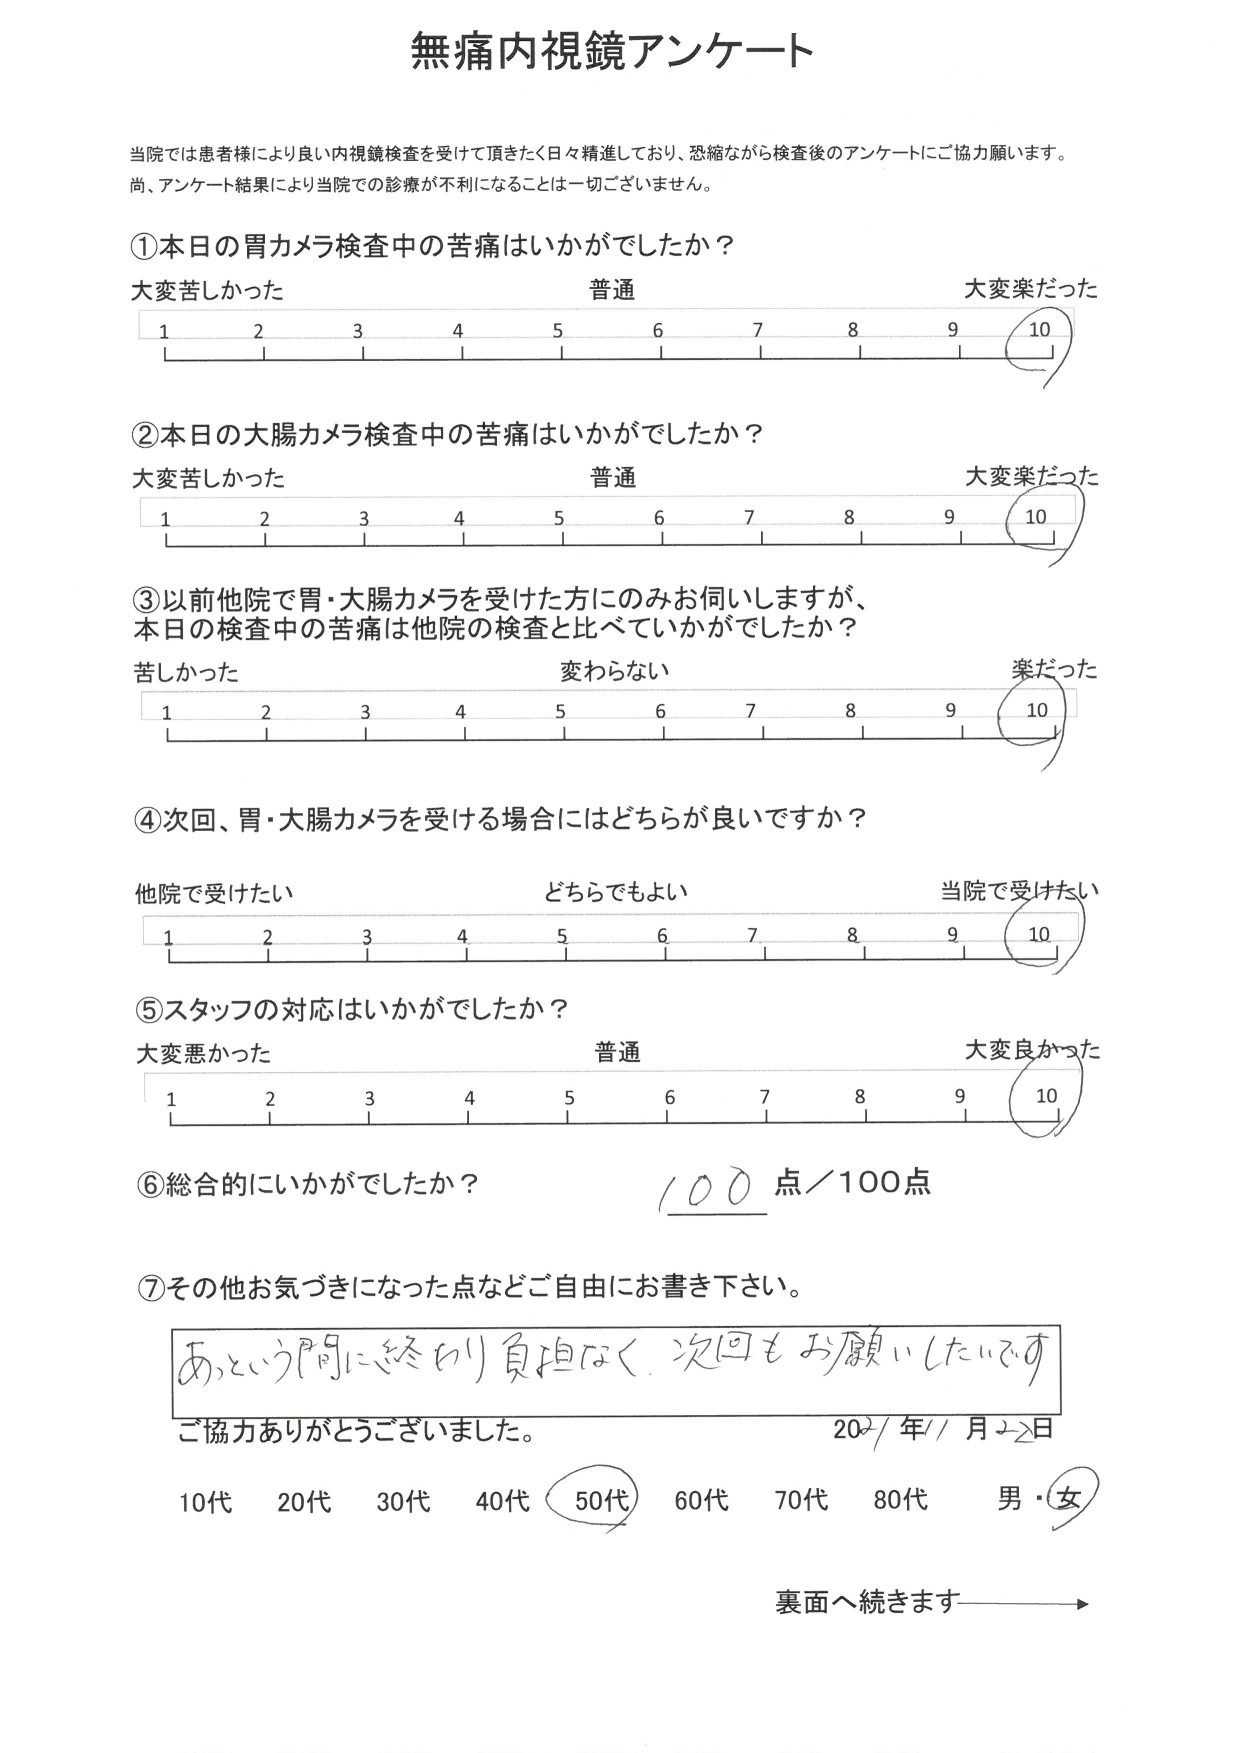 無痛内視鏡アンケート
当院では患者様により良い内視鏡検査を受けて頂きたく日々精進しており、恐縮ながら検査後のアンケートにご協力願います。
尚、アンケート結果により当院での診療が不利になることは一切ございません。
①本日の胃カメラ検査中の苦痛はいかがでしたか？
大変苦しかった 普通 大変楽だった
1 2 3 4 5 6 7 8 9 10
②本日の大腸カメラ検査中の苦痛はいかがでしたか？
大変苦しかった 普通 大変楽だった
1 2 3 4 5 6 7 8 9 10
③以前他院で胃・大腸カメラを受けた方にのみお伺いしますが、
本日の検査中の苦痛は他院の検査と比べていかがでしたか？
苦しかった 変わらない 楽だった
1 2 3 4 5 6 7 8 9 10
④次回、胃・大腸カメラを受ける場合にはどちらが良いですか？
他院で受けたい どちらでもよい 当院で受けたい
1 2 3 4 5 6 7 8 9 10
⑤スタッフの対応はいかがでしたか？
大変悪かった 普通 大変良かった
1 2 3 4 5 6 7 8 9 10
⑥総合的にいかがでしたか？ 100 点／100点
⑦その他お気づきになった点などご自由にお書き下さい。
あっという間に終わり負担なく、次回もお願いしたいです
ご協力ありがとうございました。 2021年11月22日
10代 20代 30代 40代 50代 60代 70代 80代 男・女
裏面へ続きます